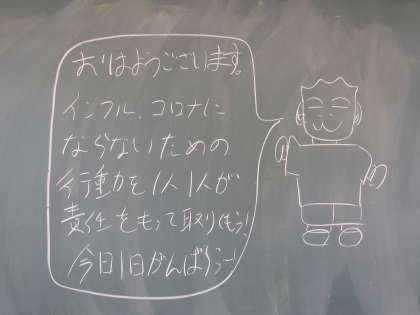 おはようございます。
インフル、コロナに
ならないための
行動を1人1人が
責任をもって取りくもう!
今日1日がんばろう!